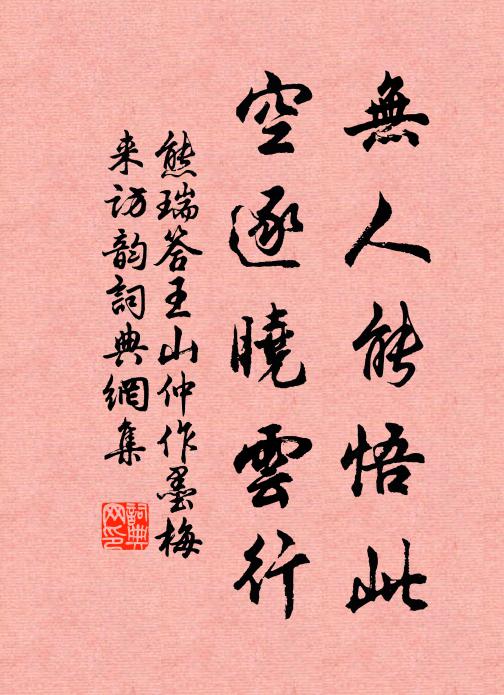 無人能悟此
空逐曉雲行
熊瑞答王山仲作墨梅
来访韵詞典網集
詞典
网印